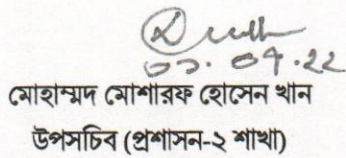 ০১. ০৭.২২
মোহাম্মদ মোশারফ হোসেন খান
উপসচিব (প্রশাসন-২ শাখা)